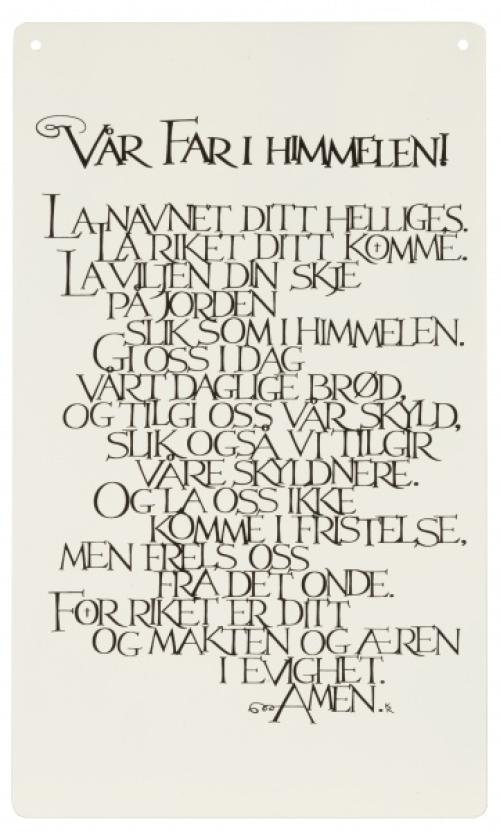 VÅR FAR I HIMMELEN!
LA NAVNET DITT HELLIGES.
LA RIKET DITT KOMME.
LA VILJEN DIN SKJE
PÅ JORDEN
SLIK SOM I HIMMELEN.
GI OSS I DAG
VÅRT DAGLIGE BRØD,
OG TILGI OSS VÅR SKYLD,
SLIK OGSÅ VI TILGIR
VÅRE SKYLDNERE.
OG LA OSS IKKE
KOMME I FRISTELSE,
MEN FRELS OSS
FRA DET ONDE.
FOR RIKET ER DITT
OG MAKTEN OG ÆREN
I EVIGHET.
AMEN.